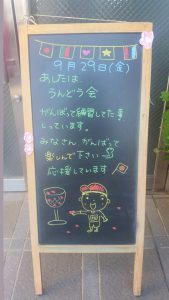 9月29日(金)
あしたは
うんどう会
がんばって練習してた事
しっています。
みなさん がんばって
楽しんで下さい
応援しています